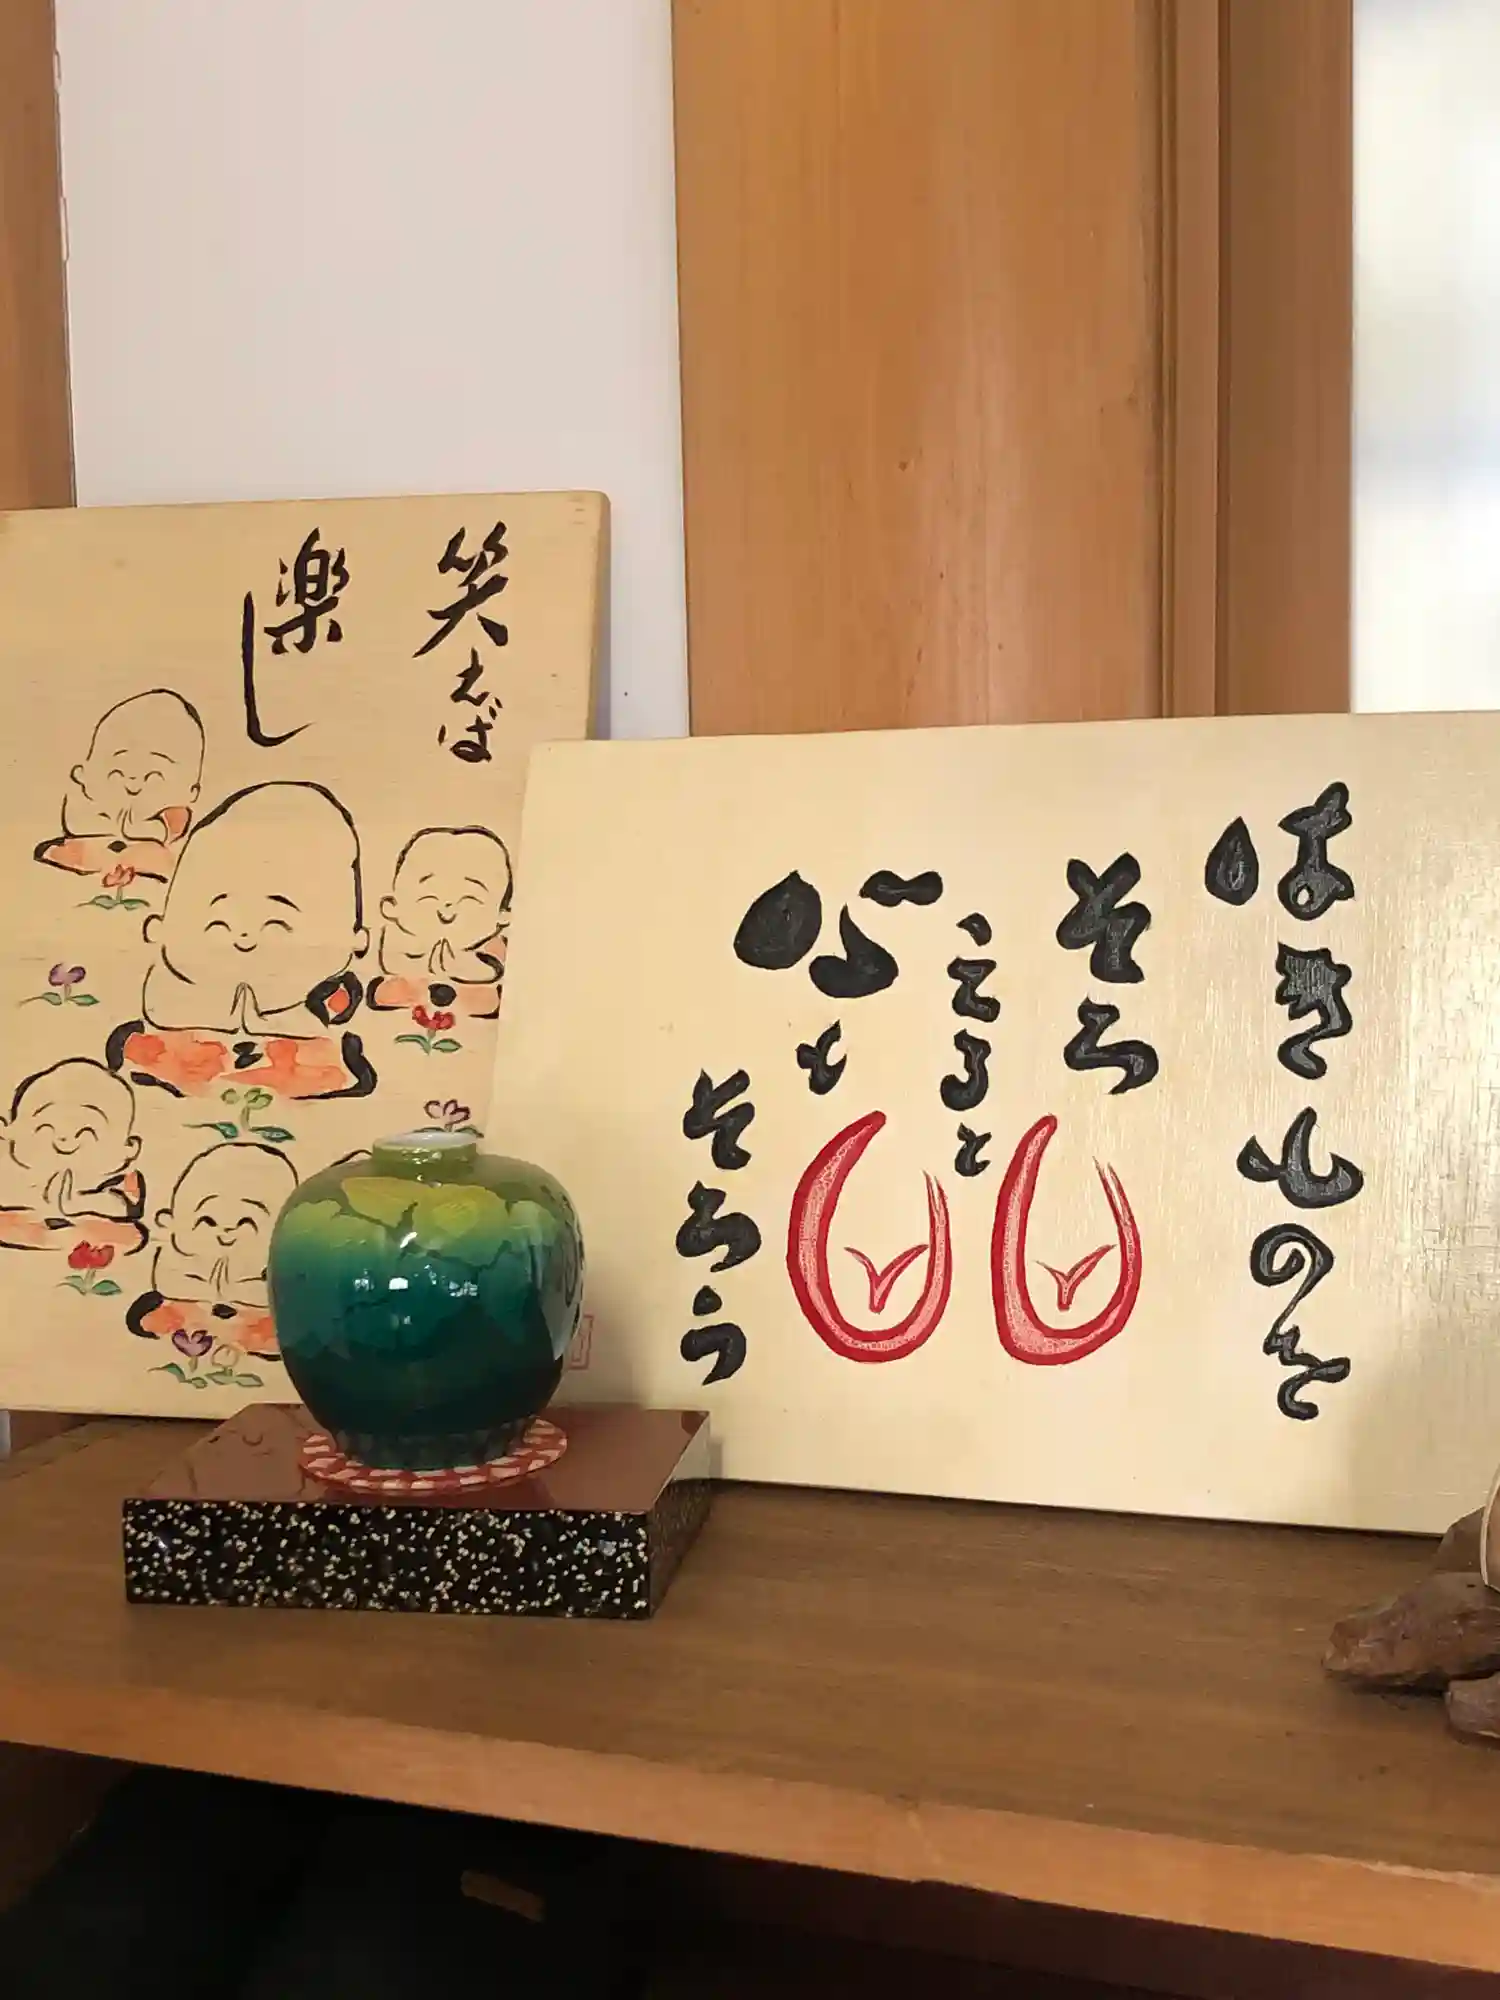 笑えば
楽し
はきものを
そろ
えると
心も
そろう